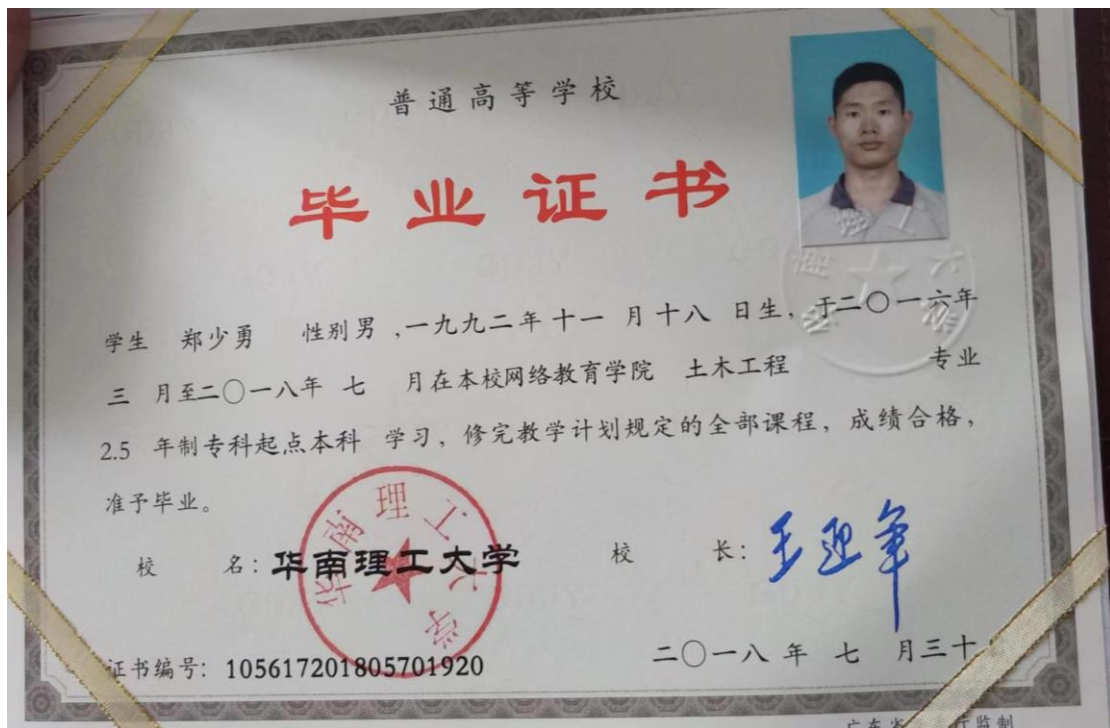 普通高等学校
毕业证书
学生 郑少勇 性别男 ,一九九二年十一 月十八 日生，于二〇一六年
三 月至二〇一八年 七 月在本校网络教育学院 土木工程 专业
2.5 年制专科起点本科 学习，修完教学计划规定的全部课程，成绩合格，
准予毕业。
校 名：华南理工大学 校 长：王迎军
华南理工大学
证书编号：105617201805701920 二〇一八 年 七 月三十
广东省 厅监制